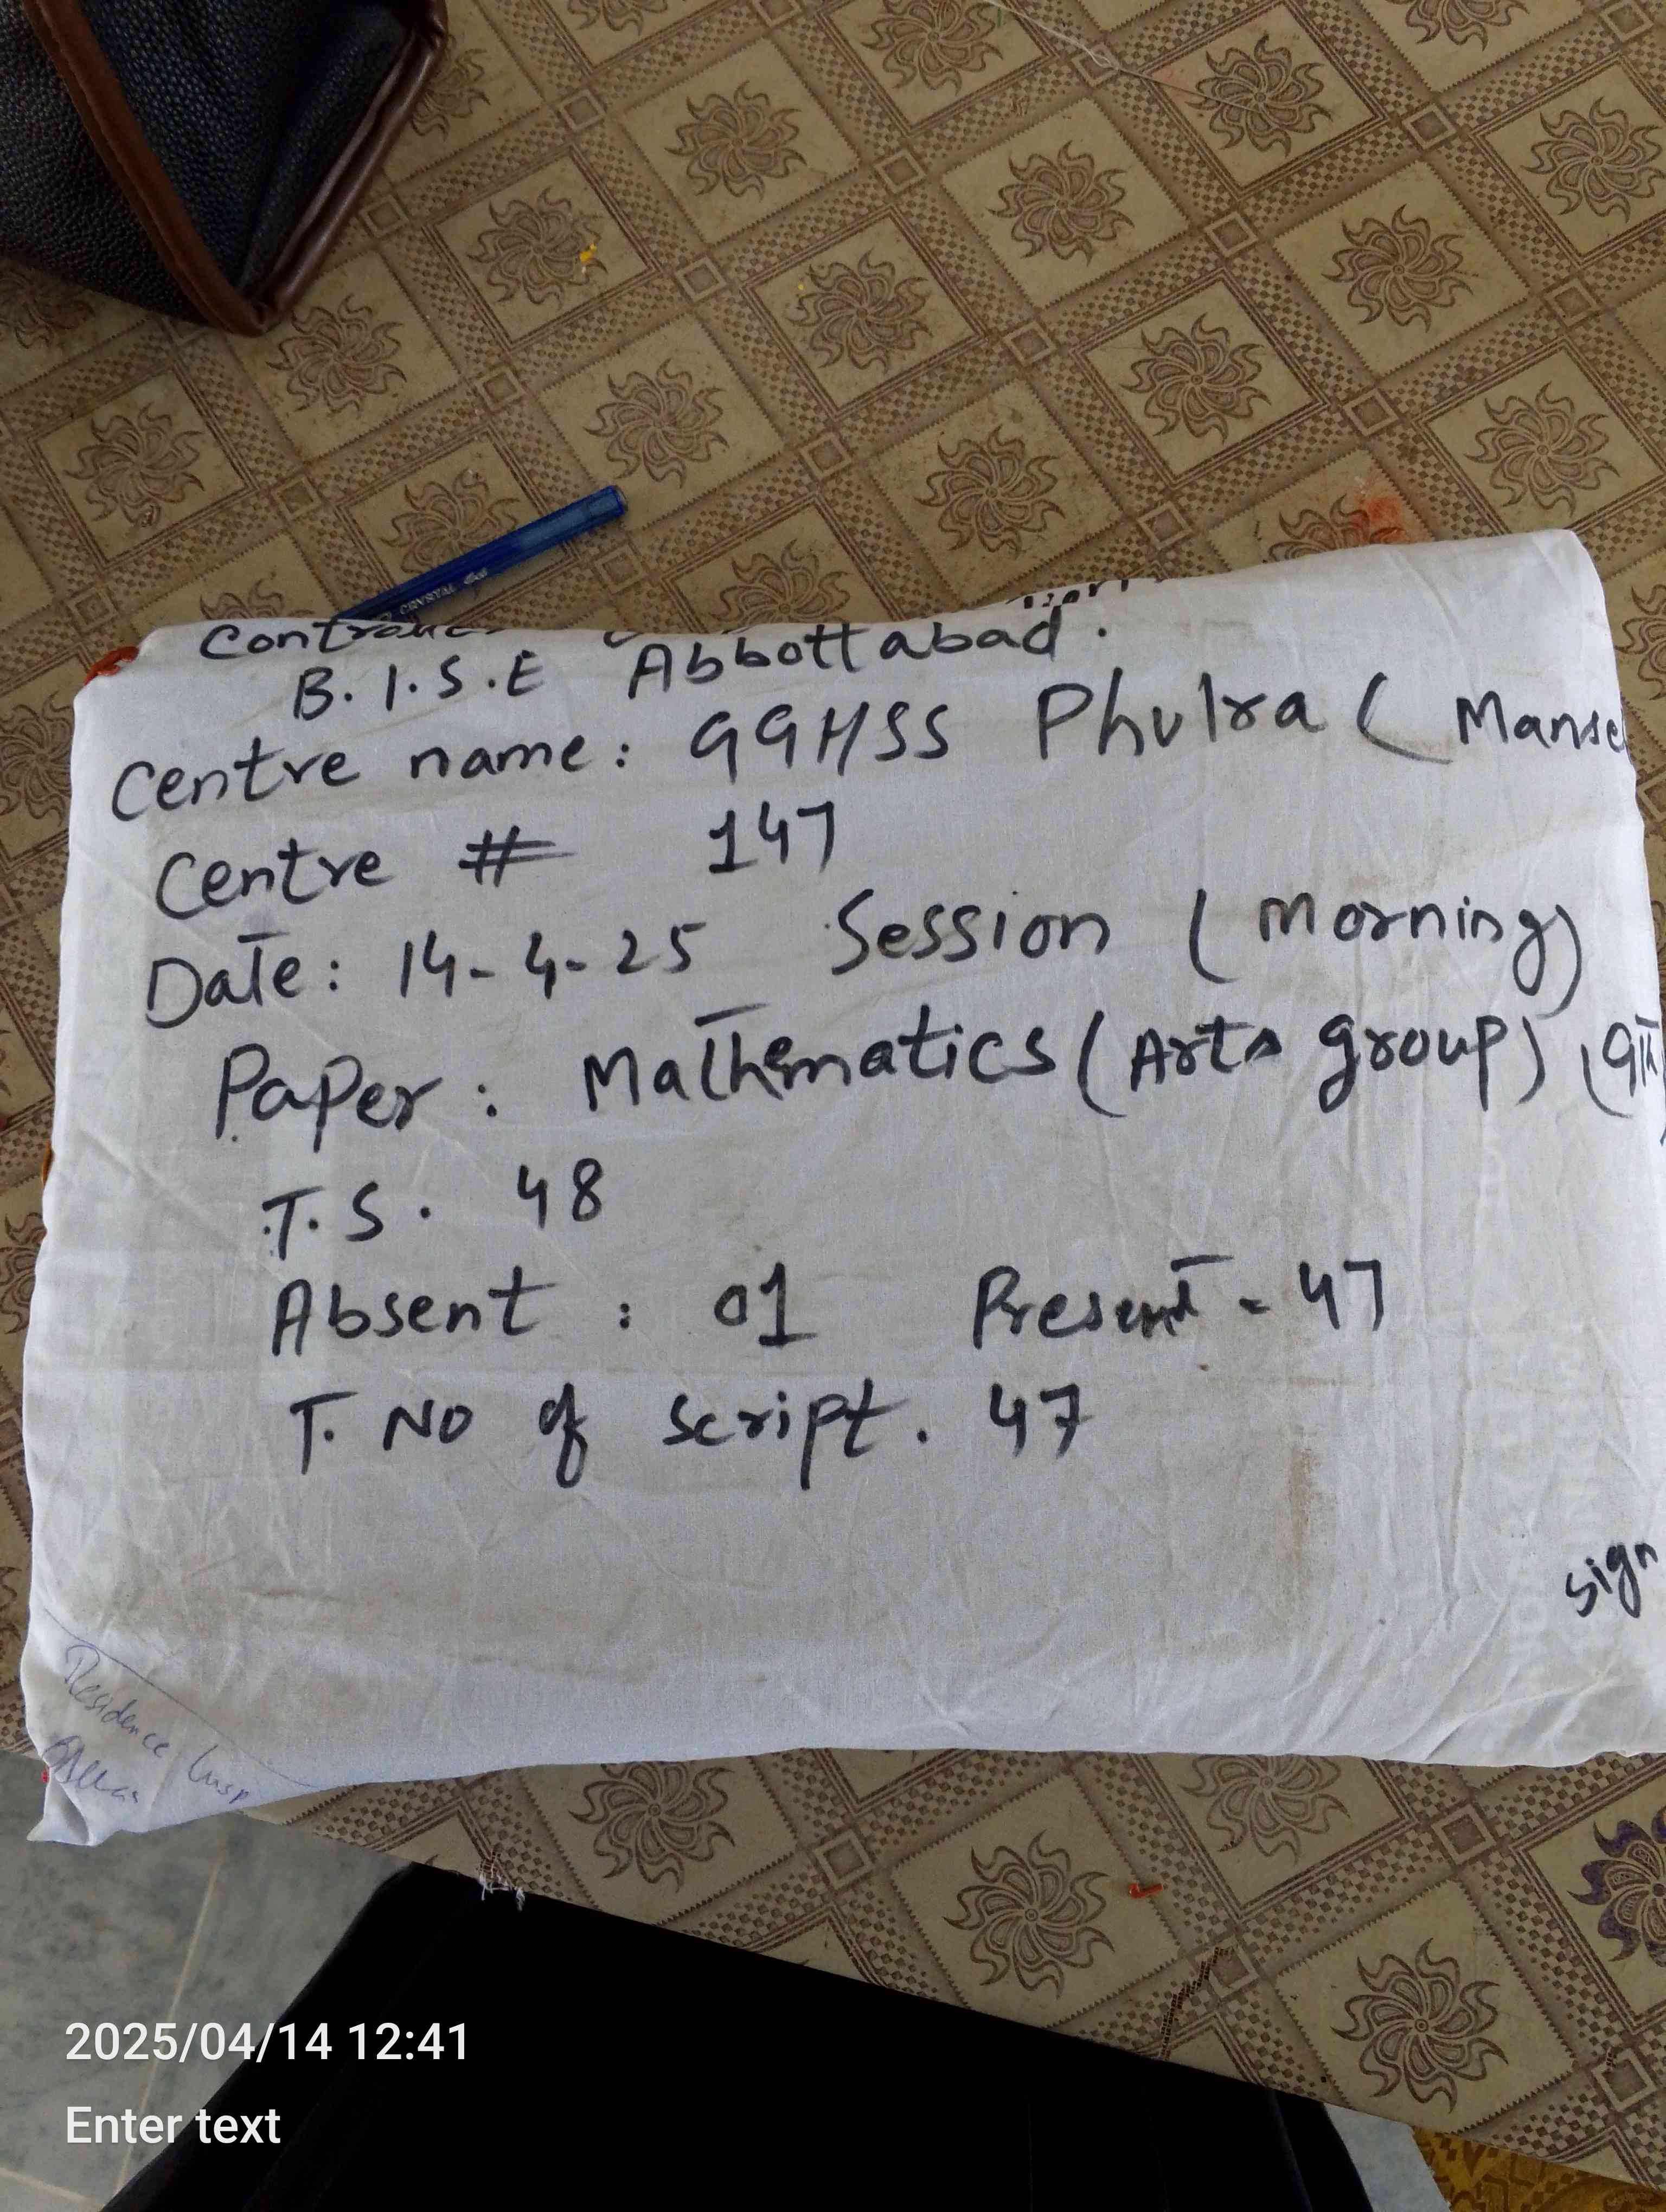 CRYSTAL Gel
B.I.S.E Abbottabad.
Centre name: GGHSS Phulra (Manse
Centre # 147
Date: 14-4-25 Session (Morning)
Paper: Mathematics (Arts group) (9th)
T.S. 48
Absent : 01 Present - 47
T. No of script. 47
sign
Residence Insp
2025/04/14 12:41
Enter text